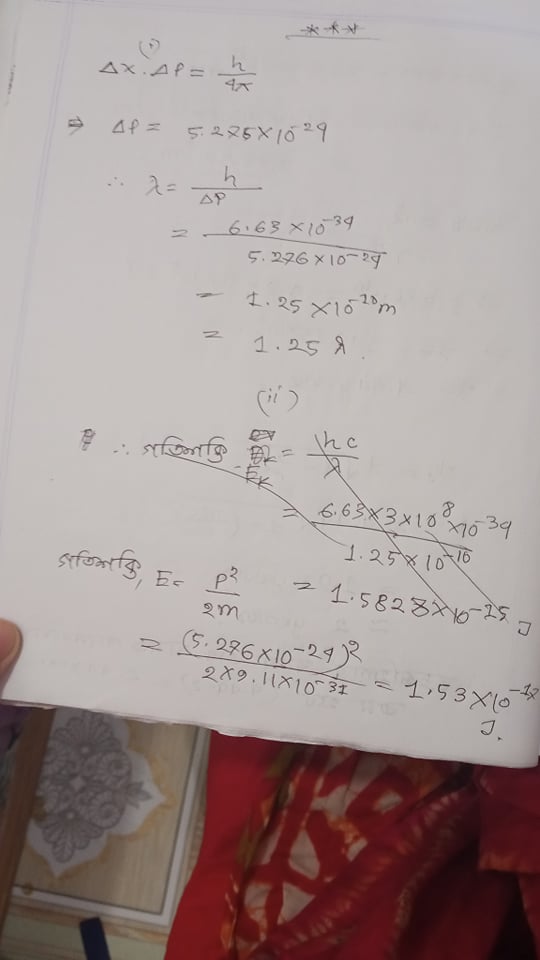 ***
(i)
Δx. ΔP = h/4π
⇒ ΔP = 5.276×10⁻²⁴
∴ λ = h/ΔP
= 6.63 ×10⁻³⁴ / 5.276×10⁻²⁴
= 1.25 ×10⁻¹⁰m
= 1.25 Å.
(ii)
∴ গতিশক্তি E_K = hc/λ
= 6.63×3×10⁸×10⁻³⁴ / 1.25×10⁻¹⁰
= 1.5828×10⁻¹⁵ J
গতিশক্তি, E = P²/2m
= (5.276×10⁻²⁴)² / 2×9.11×10⁻³¹ = 1.53×10⁻¹⁷ J.